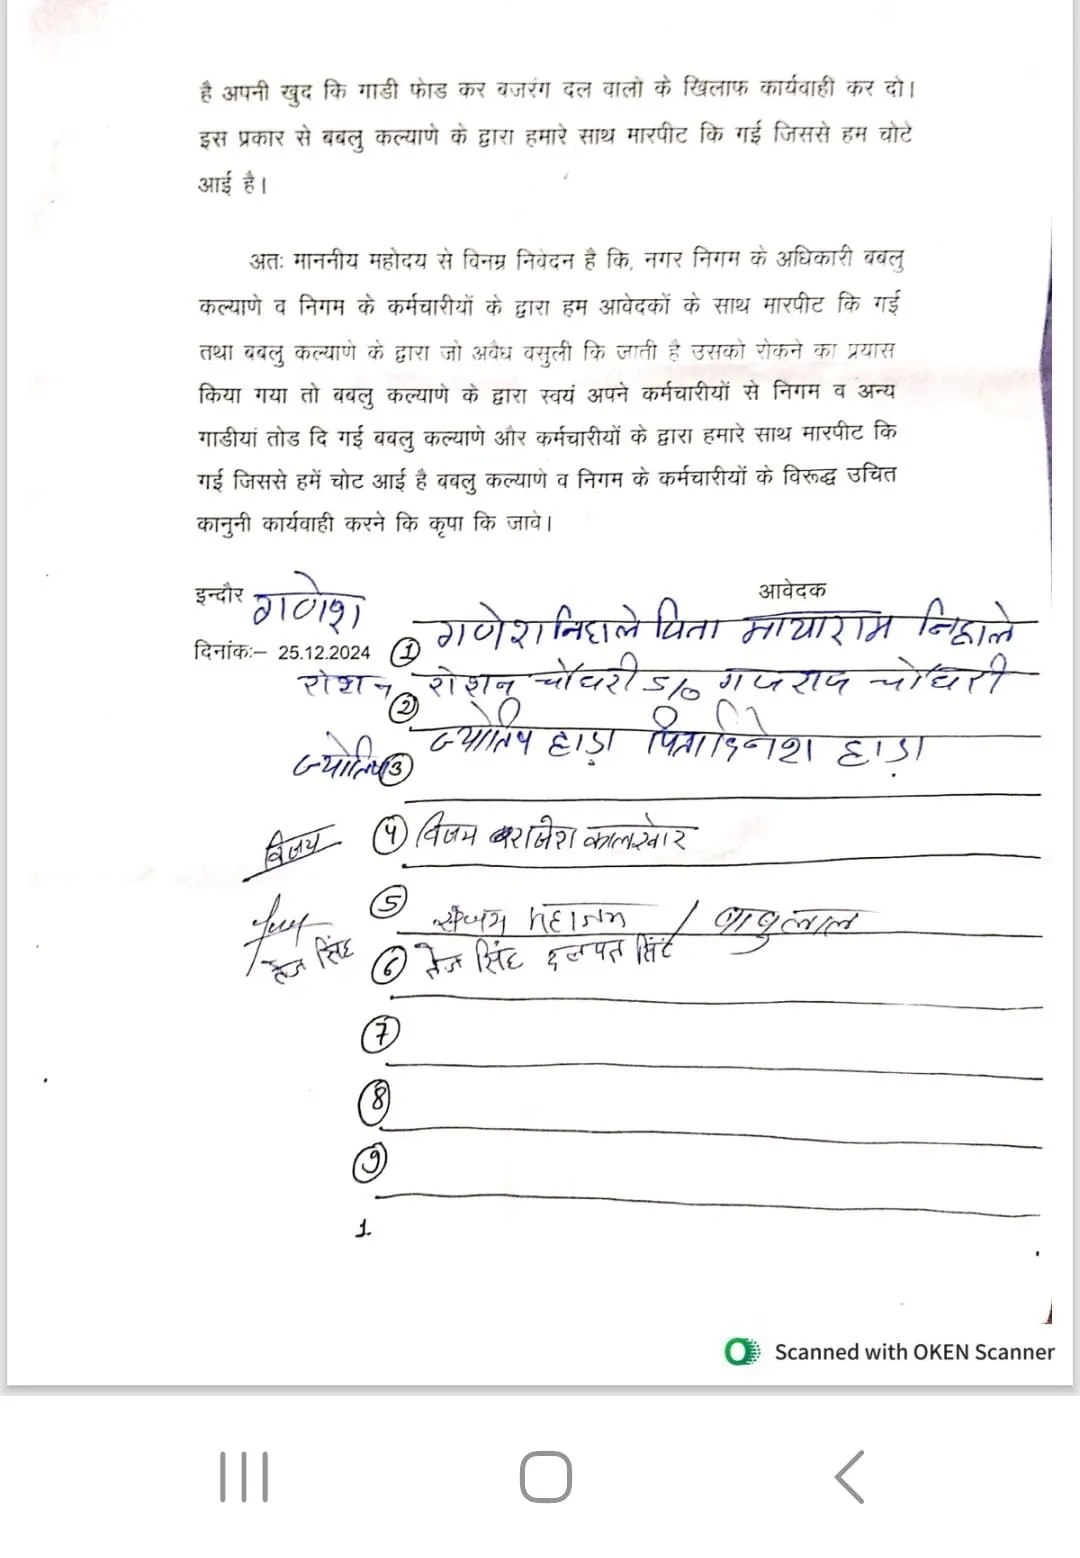 है अपनी खुद कि गाडी फोड कर बजरंग दल वालो के खिलाफ कार्यवाही कर दो।
इस प्रकार से बबलु कल्याणे के द्वारा हमारे साथ मारपीट कि गई जिससे हम चोटे
आई है।
अतः माननीय महोदय से विनम्र निवेदन है कि, नगर निगम के अधिकारी बबलु
कल्याणे व निगम के कर्मचारीयों के द्वारा हम आवेदकों के साथ मारपीट कि गई
तथा बबलु कल्याणे के द्वारा जो अवैध वसुली कि जाती है उसको रोकने का प्रयास
किया गया तो बबलु कल्याणे के द्वारा स्वयं अपने कर्मचारीयों से निगम व अन्य
गाडीयां तोड दि गई बबलु कल्याणे और कर्मचारीयों के द्वारा हमारे साथ मारपीट कि
गई जिससे हमें चोट आई है बबलु कल्याणे व निगम के कर्मचारीयों के विरूद्ध उचित
कानुनी कार्यवाही करने कि कृपा कि जावे।
इन्दौर गणेश आवेदक
दिनांक:– 25.12.2024 ① गणेश निहाले पिता मायाराम निहाले
रोशन ② रोशन चौधरी S/o गजराज चौधरी
ज्योतिष ③ ज्योतिष हाड़ा पिता दिनेश हाड़ा
विजय ④ विजय राजेश
⑤ संजय महाजन / बाबुलाल
तेज सिंह ⑥ तेज सिंह दलपत सिंह
⑦
⑧
⑨
1.
Scanned with OKEN Scanner